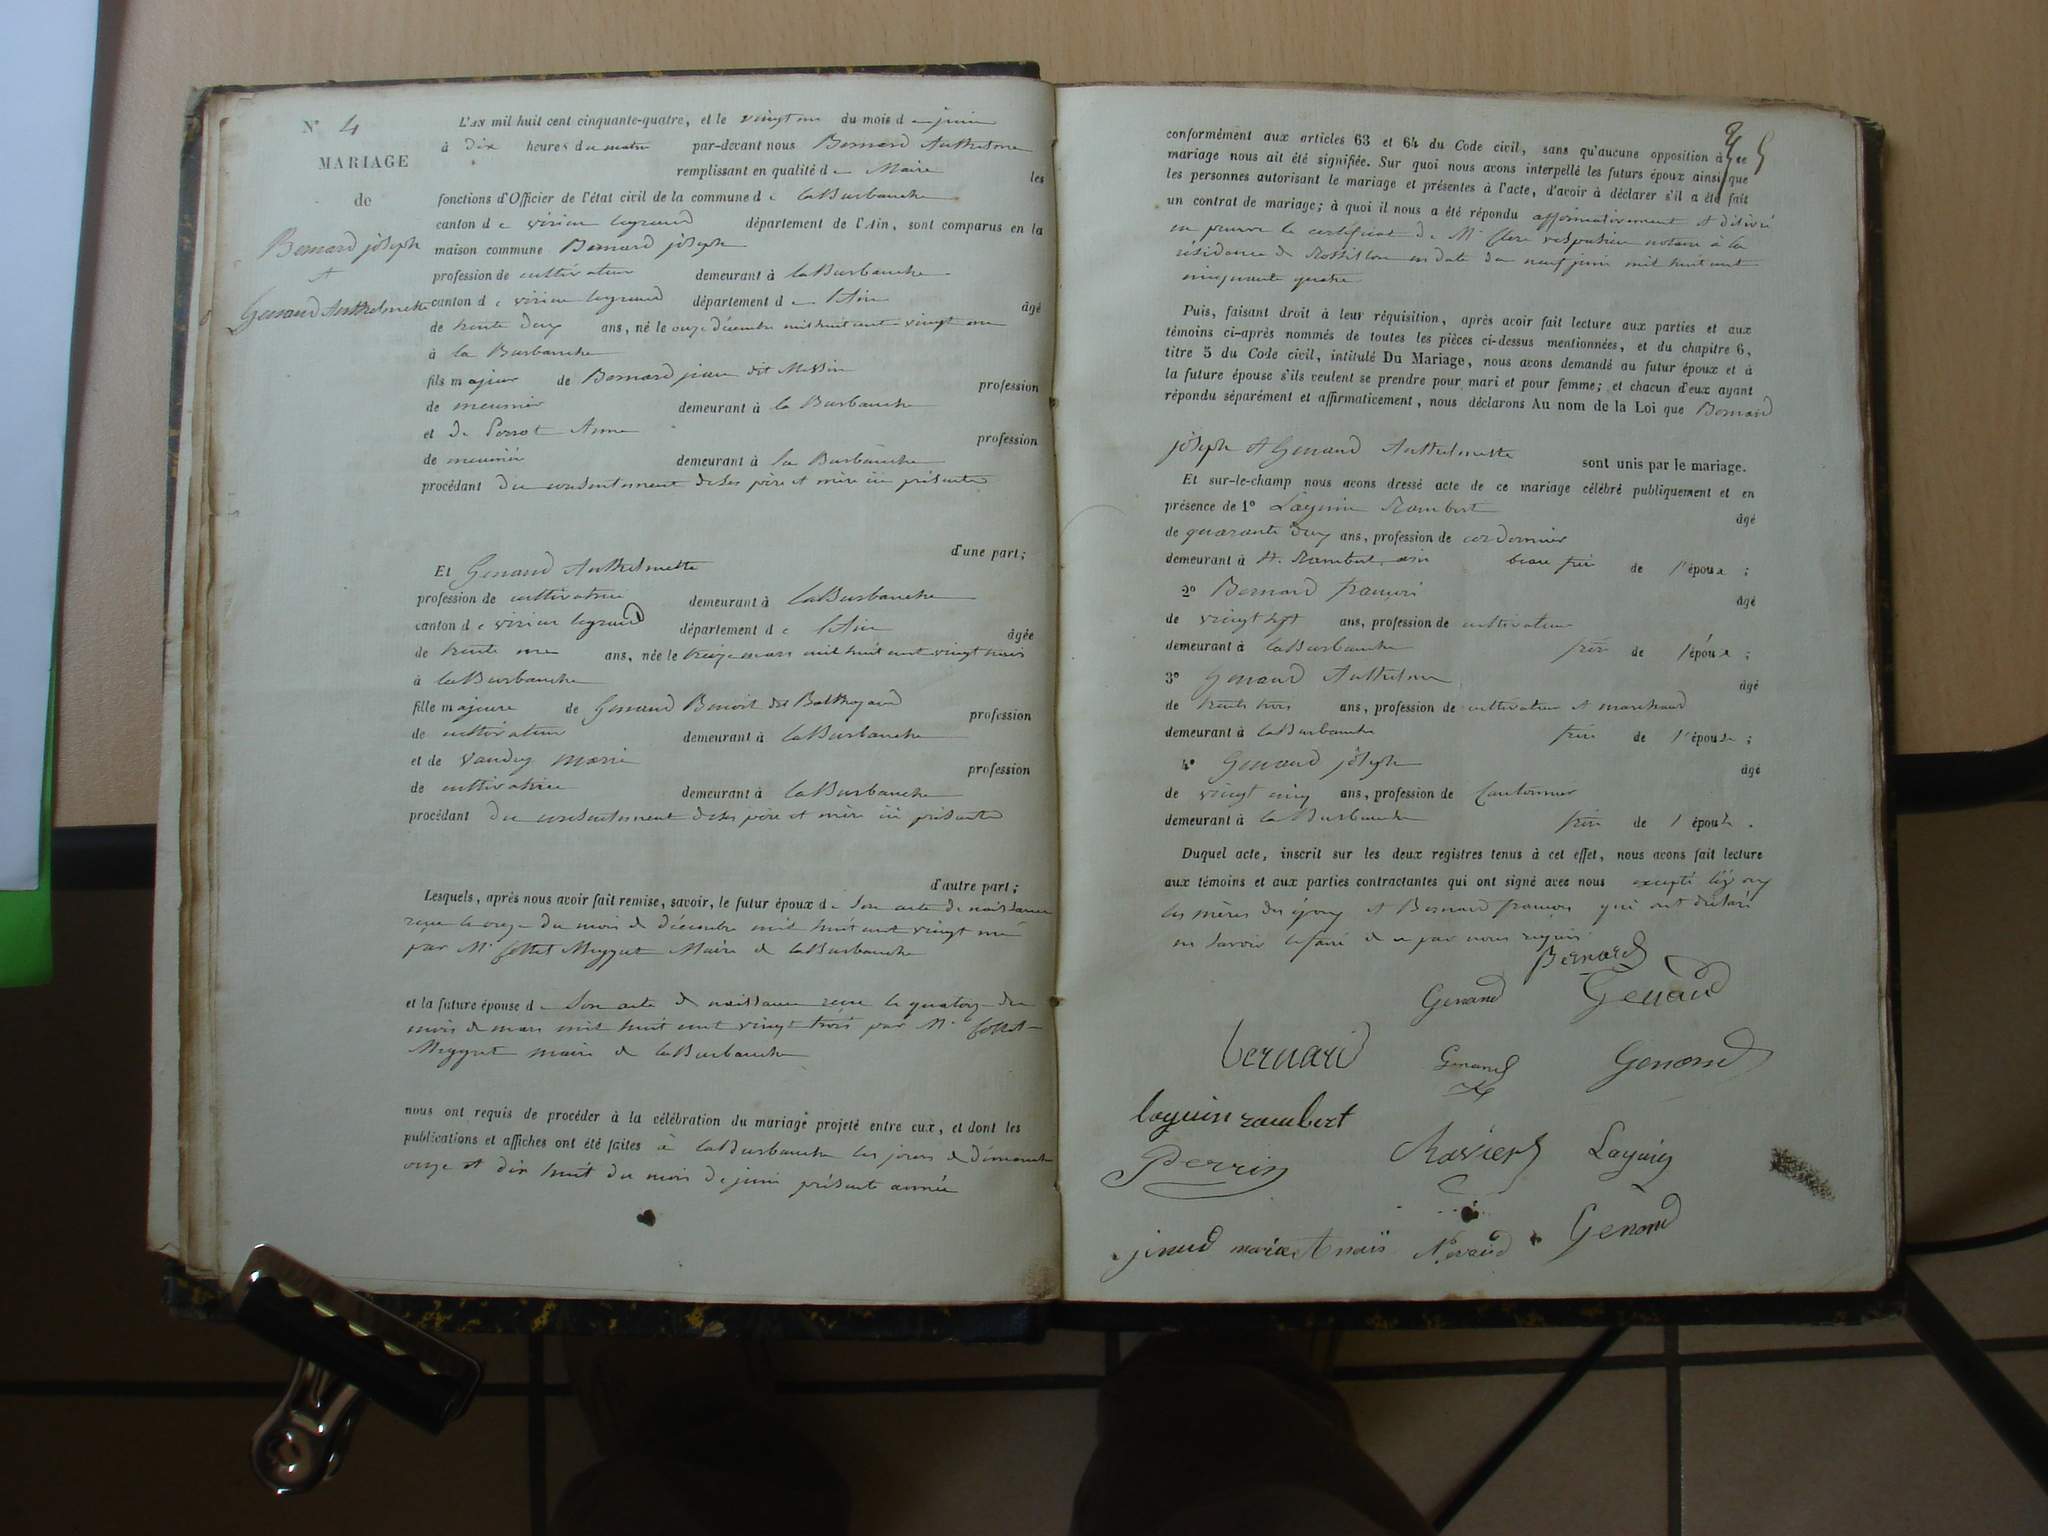 N° 4
MARIAGE
de
Bernard joseph
et
Genand Anthelmette
L'AN mil huit cent cinquante-quatre, et le vingt un du mois de juin
à dix heures du matin par-devant nous Bernard Anthelme
remplissant en qualité de Maire les
fonctions d'Officier de l'état civil de la commune de laBurbanche
canton de virieu legrand département de l'Ain, sont comparus en la
maison commune Bernard joseph
profession de cultivateur demeurant à laBurbanche
canton de virieu legrand département de l'Ain âgé
de trente deux ans, né le onze décembre mil huit cent vingt un
à la Burbanche
fils majeur de Bernard dit Messin profession
de meunier demeurant à la Burbanche
et de Perrot Anne profession
de meunier demeurant à la Burbanche
procédant du consentement de ses père et mère ici présents
d'une part;
Et Genand Anthelmette
profession de cultivatrice demeurant à laBurbanche
canton de virieu legrand département de l'Ain âgée
de trente un ans, née le treize mars mil huit cent vingt trois
à laBurbanche
fille majeure de Genand Benoit dit profession
de cultivateur demeurant à laBurbanche
et de Vaudey Marie profession
de cultivatrice demeurant à laBurbanche
procédant du consentement de ses père et mère ici présents
d'autre part;
Lesquels, après nous avoir fait remise, savoir, le futur époux de Son acte de naissance
reçu le onze du mois de décembre mil huit cent vingt un
par Mr Cottet Meygret Maire de laBurbanche
et la future épouse de Son acte de naissance reçu le quatorze du
mois de mars mil huit cent vingt trois par Mr Cottet
Meygret maire de laBurbanche
nous ont requis de procéder à la célébration du mariage projeté entre eux, et dont les
publications et affiches ont été faites à laBurbanche les jours de dimanche
onze et dix huit du mois de juin présente année
conformément aux articles 63 et 64 du Code civil, sans qu'aucune opposition à ce
mariage nous ait été signifiée. Sur quoi nous avons interpellé les futurs époux ainsi que
les personnes autorisant le mariage et présentes à l'acte, d'avoir à déclarer s'il a été fait
un contrat de mariage; à quoi il nous a été répondu affirmativement et délivré
en preuve le certificat de Mr Clerc vespasien notaire à la
résidence de Rossillon en date du neuf juin mil huit cent
cinquante quatre
Puis, faisant droit à leur réquisition, après avoir fait lecture aux parties et aux
témoins ci-après nommés de toutes les pièces ci-dessus mentionnées, et du chapitre 6,
titre 5 du Code civil, intitulé Du Mariage, nous avons demandé au futur époux et à
la future épouse s'ils veulent se prendre pour mari et pour femme; et chacun d'eux ayant
répondu séparément et affirmativement, nous déclarons Au nom de la Loi que Bernard
joseph et Genand Anthelmette sont unis par le mariage.
Et sur-le-champ nous avons dressé acte de ce mariage célébré publiquement et en
présence de 1° Laguin Rambert âgé
de quarante deux ans, profession de cordonnier
demeurant à St. Rambert, ain beau frère de l'époux ;
2° Bernard françois âgé
de vingt sept ans, profession de cultivateur
demeurant à laBurbanche frère de l'époux ;
3° Genand Anthelme âgé
de trente trois ans, profession de cultivateur et marchand
demeurant à laBurbanche frère de l'épouse ;
4° Genand joseph âgé
de vingt cinq ans, profession de Cantonnier
demeurant à la Burbanche frère de l'épouse .
Duquel acte, inscrit sur les deux registres tenus à cet effet, nous avons fait lecture
aux témoins et aux parties contractantes qui ont signé avec nous excepté
les mères des époux et Bernard françois qui ont déclaré
ne savoir le faire de ce par nous requis
Bernard
Genand Genand
bernard Genand Genand
laguin rambert
Perrin Ravier Laguin
marie Genand